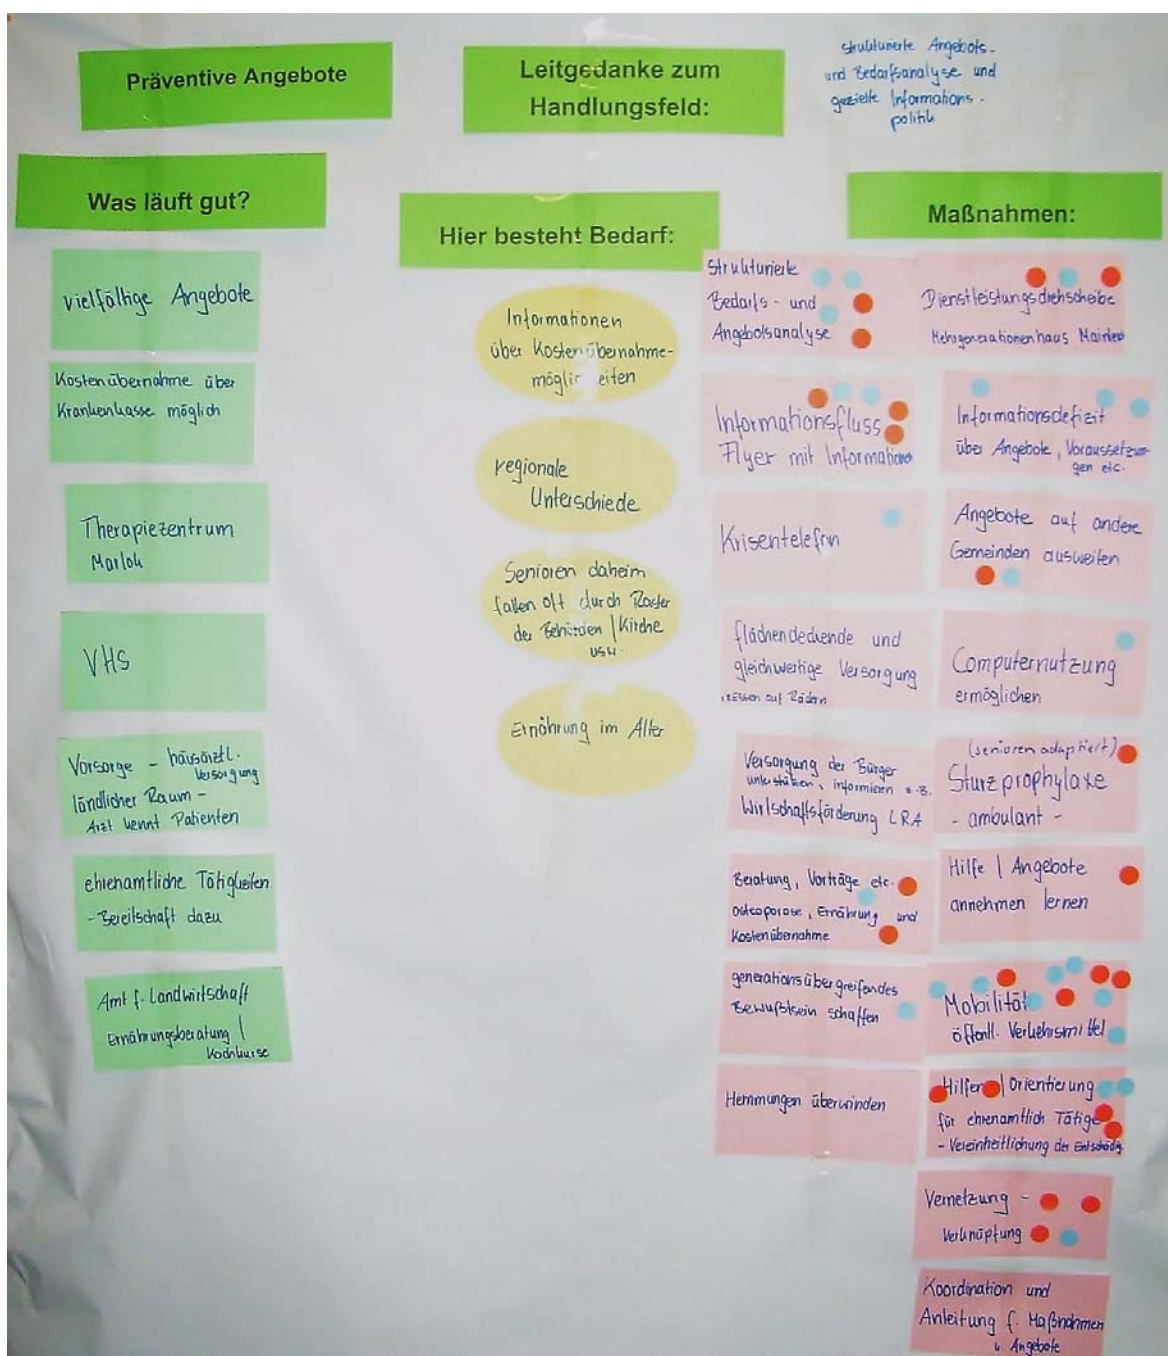 Präventive Angebote
Leitgedanke zum
Handlungsfeld:
strukturierte Angebots-
und Bedarfsanalyse und
gezielte Informations-
politik
Was läuft gut?
vielfältige Angebote
Kostenübernahme über
Krankenkasse möglich
Therapiezentrum
VHS
Vorsorge - hausärztl.
Versorgung
ländlicher Raum -
Arzt kennt Patienten
ehrenamtliche Tätigkeiten
- Bereitschaft dazu
Amt f. Landwirtschaft
Ernährungsberatung /
Kochkurse
Hier besteht Bedarf:
Informationen
über Kostenübernahme-
möglichkeiten
regionale
Unterschiede
Senioren daheim
fallen oft durch Raster
der Behörden / Kirche
usw.
Ernährung im Alter
Maßnahmen:
Strukturierte
Bedarfs- und
Angebotsanalyse
Informationsfluss
Flyer mit Information
Krisentelefon
flächendeckende und
gleichwertige Versorgung
Essen auf Rädern
Versorgung der Bürger
unterstützen, informieren z.B.
Wirtschaftsförderung LRA
Beratung, Vorträge etc.
Osteoporose, Ernährung und
Kostenübernahme
generationsübergreifendes
Bewußtsein schaffen
Hemmungen überwinden
Dienstleistungsdrehscheibe
Mehrgenerationenhaus Mainleus
Informationsdefizit
über Angebote, Voraussetzun-
gen etc.
Angebote auf andere
Gemeinden ausweiten
Computernutzung
ermöglichen
(senioren adaptiert)
Sturzprophylaxe
- ambulant -
Hilfe / Angebote
annehmen lernen
Mobilität
öffentl. Verkehrsmittel
Hilfen / Orientierung
für ehrenamtlich Tätige
- Vereinheitlichung der Entschädig.
Vernetzung -
Verknüpfung
Koordination und
Anleitung f. Maßnahmen
u. Angebote